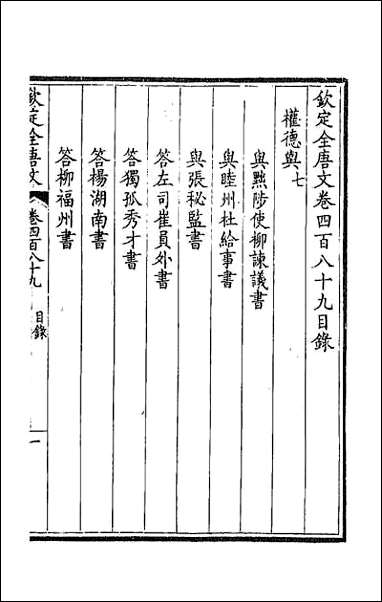 欽定全唐文卷四百八十九目錄
權德輿七
與黜陟使柳諫議書
與睦州杜給事書
與張秘監書
答左司崔員外書
答獨孤秀才書
答楊湖南書
答柳福州書
欽定全唐文 卷四百八十九 目錄 一